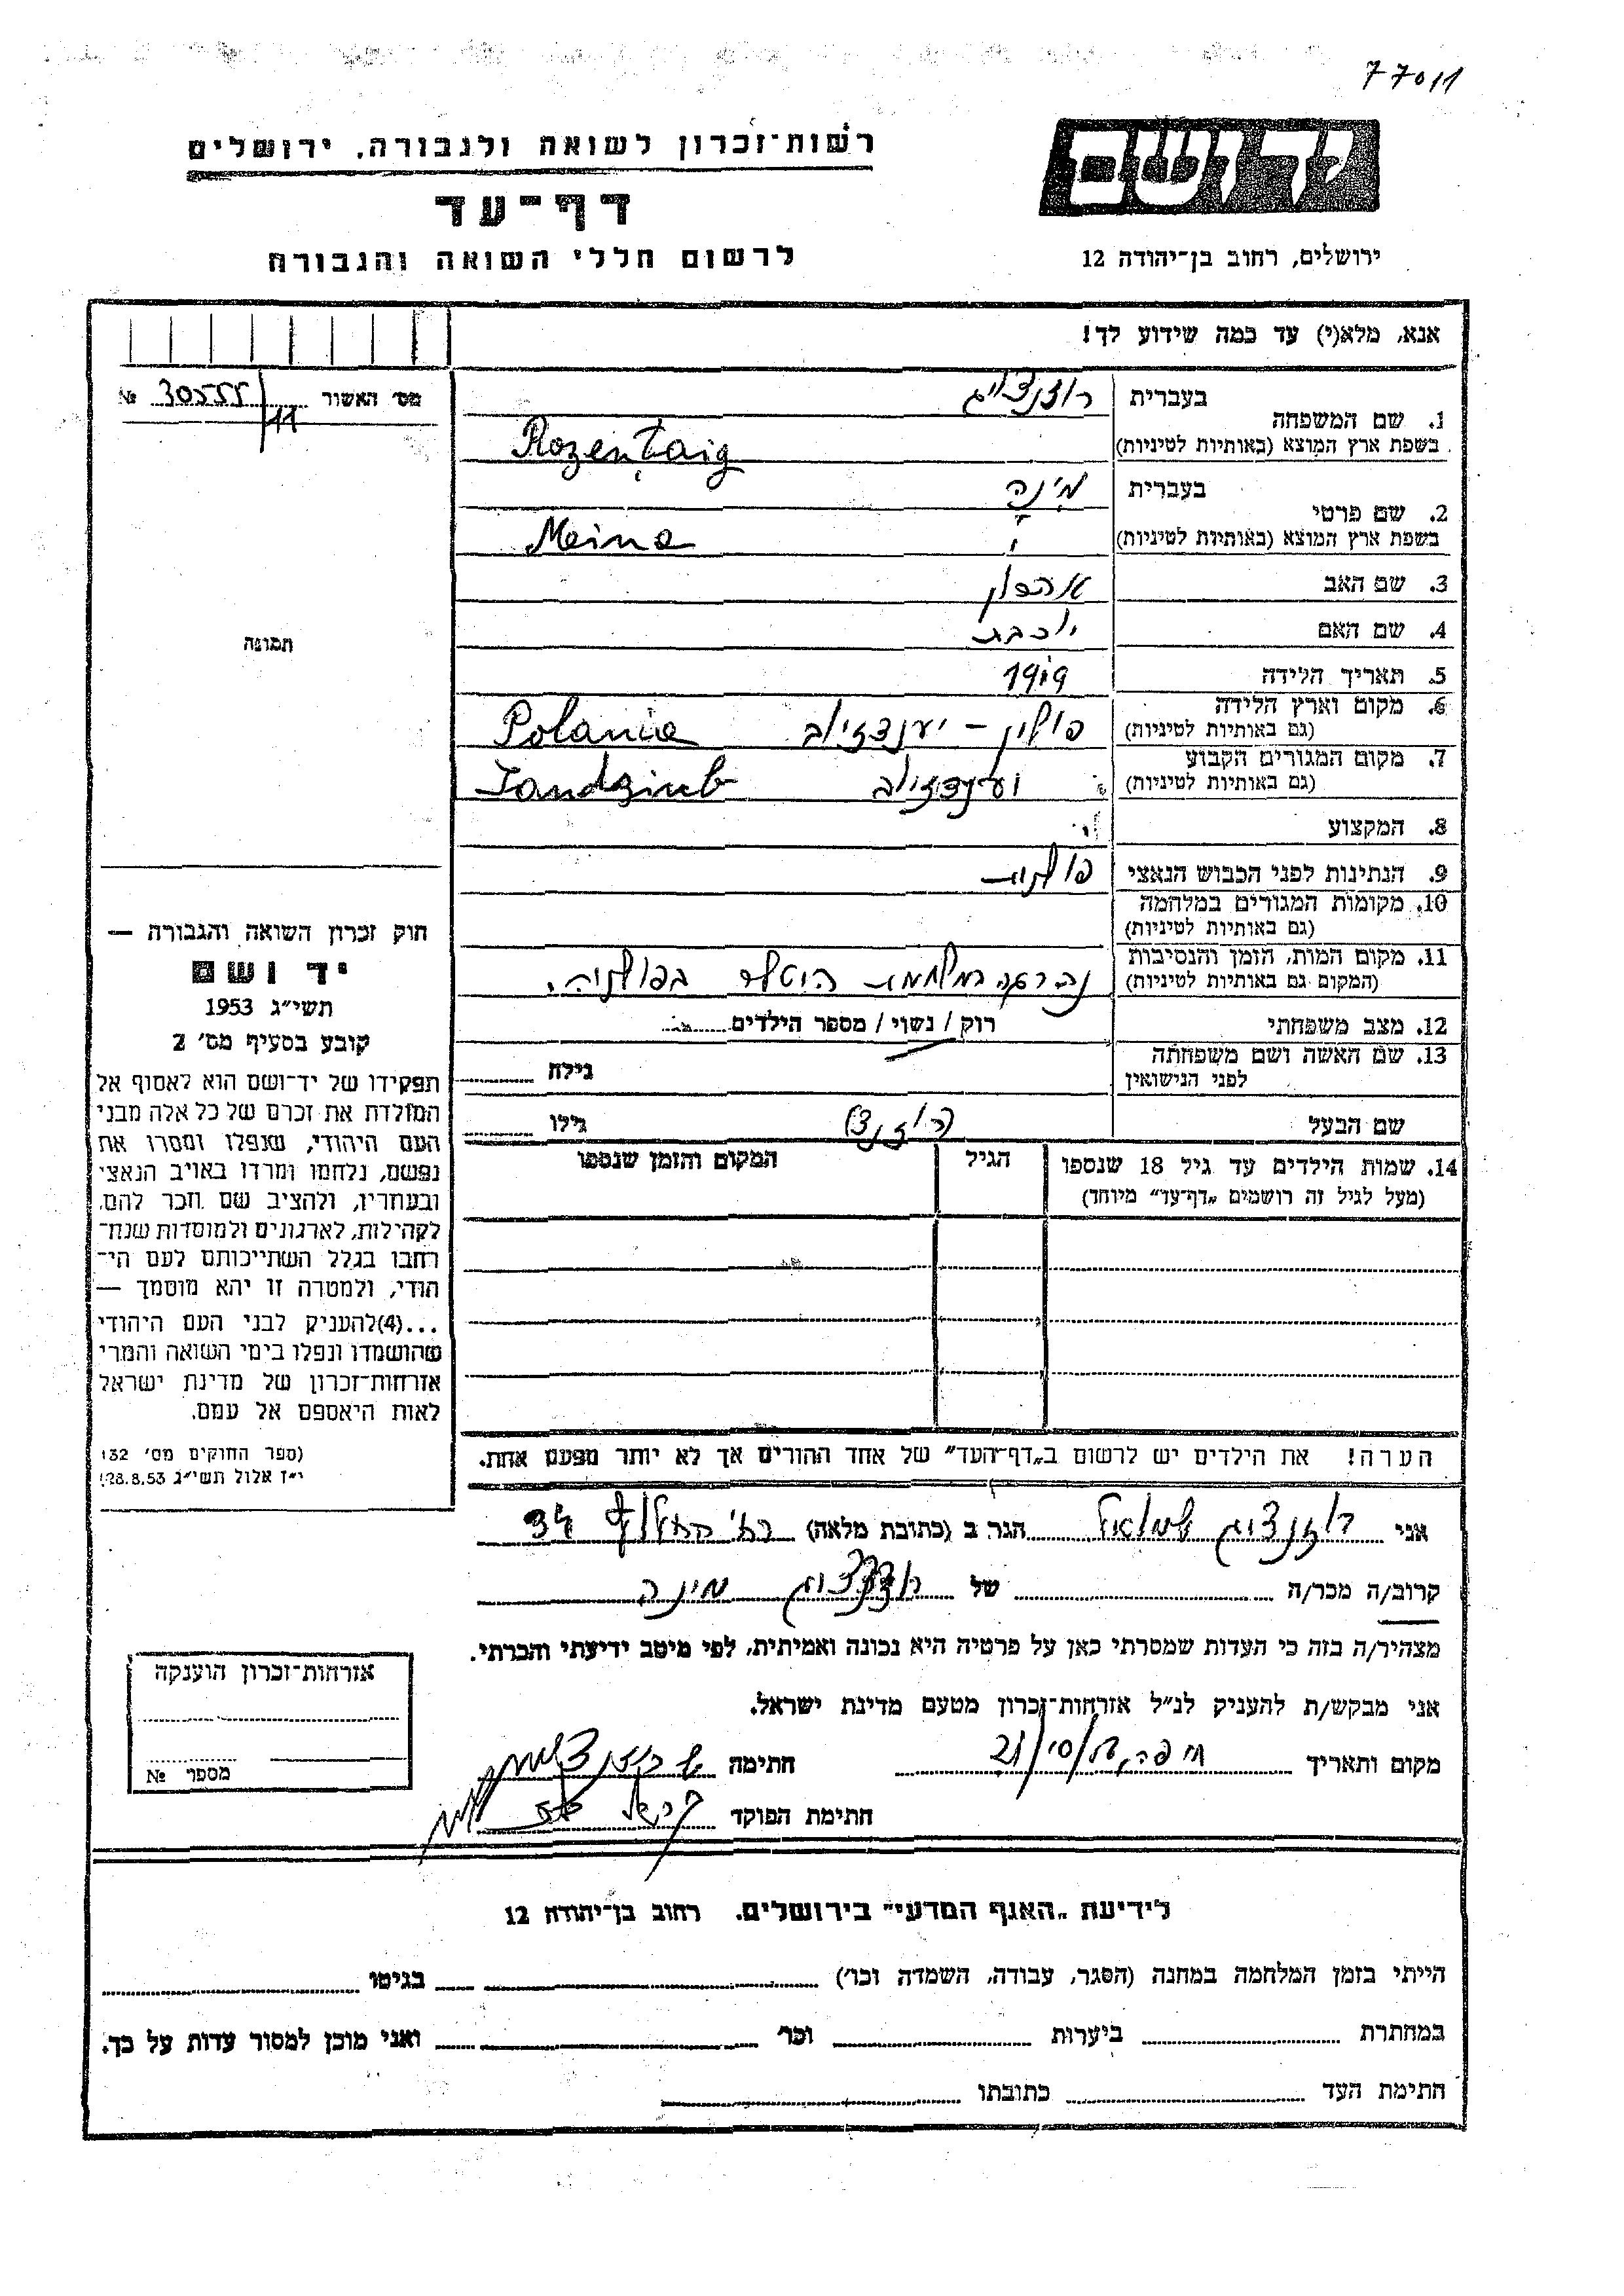 77011
רשות־זכרון לשואה ולגבורה, ירושלים
דף־עד
לרשום חללי השואה והגבורה
יד ושם
ירושלים, רחוב בן־יהודה 12
אנא, מלא(י) עד כמה שידוע לך!
מס׳ האשור 30555/11 №
1. שם המשפחה
בעברית רוזנצויג
בשפת ארץ המוצא (באותיות לטיניות) Rozentaig
2. שם פרטי
בעברית מינה
בשפת ארץ המוצא (באותיות לטיניות) Meina
3. שם האב אהרון
4. שם האם יוכבת
5. תאריך הלידה 1909
6. מקום וארץ הלידה פולין – יענדזיוב Polania
(גם באותיות לטיניות)
7. מקום המגורים הקבוע יענדזיוב Jandziub
(גם באותיות לטיניות)
8. המקצוע
9. הנתינות לפני הכבוש הנאצי פולנית
10. מקומות המגורים במלחמה
(גם באותיות לטיניות)
11. מקום המות, הזמן והנסיבות נהרגה במלחמת היטלר בפולניה.
(המקום גם באותיות לטיניות)
12. מצב משפחתי רוק / נשוי / מספר הילדים
13. שם האשה ושם משפחתה
לפני הנישואין גילה
שם הבעל גילו
14. שמות הילדים עד גיל 18 שנספו
(מעל לגיל זה רושמים „דף־עד” מיוחד)
הגיל
המקום והזמן שנספו
תמונה
חוק זכרון השואה והגבורה —
יד ושם
תשי״ג 1953
קובע בסעיף מס׳ 2
תפקידו של יד־ושם הוא לאסוף אל
המולדת את זכרם של כל אלה מבני
העם היהודי, שנפלו ומסרו את
נפשם, נלחמו ומרדו באויב הנאצי
ובעוזריו, ולהציב שם וזכר להם,
לקהילות, לארגונים ולמוסדות שנח־
רחבו בגלל השתייכותם לעם הי־
הודי, ולמטרה זו יהא מוסמך —
...(4)להעניק לבני העם היהודי
שהושמדו ונפלו בימי השואה והמרי
אזרחות־זכרון של מדינת ישראל
לאות היאספם אל עמם.
(ספר החוקים מס׳ 132
י״ז אלול תשי״ג 28.8.53)
הערה! את הילדים יש לרשום ב„דף־העד” של אחד ההורים אך לא יותר מפעם אחת.
אני רוזנצויג שמואל הגר ב (כתובת מלאה) רח׳ החלוץ 34
קרוב/ה מכר/ה של רוזנצויג מינה
מצהיר/ה בזה כי העדות שמסרתי כאן על פרטיה היא נכונה ואמיתית, לפי מיטב ידיעתי והכרתי.
אני מבקש/ת להעניק לנ״ל אזרחות־זכרון מטעם מדינת ישראל.
מקום ותאריך חיפה חתימה
חתימת הפוקד
אזרחות־זכרון הוענקה
מספר №
לידיעת „האגף המדעי” בירושלים. רחוב בן־יהודה 12
הייתי בזמן המלחמה במחנה (הסגר, עבודה, השמדה וכו׳) בגיטו
במחתרת ביערות וכו׳ ואני מוכן למסור עדות על כך.
חתימת העד כתובתו